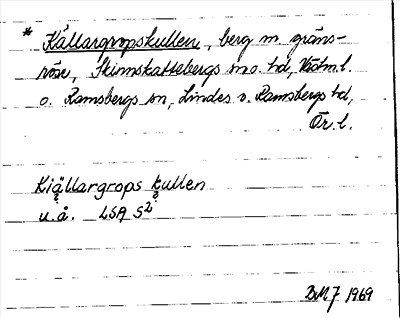 * Källargropskullen, berg m. gräns-
röse, Skinnskattebergs sn o. hd, Västm.l.
o. Ramsbergs sn, Lindes o. Ramsbergs hd,
Ör. l.
Kiällargrops kullen
u.å. LSA S2
BMJ 1969